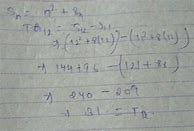 Sn = n² + 8n
T12 = S12 - S11
→ (12² + 8(12)) - (11² + 8(11))
→ 144 + 96 - (121 + 88)
→ 240 - 209
→ 31 = Tn